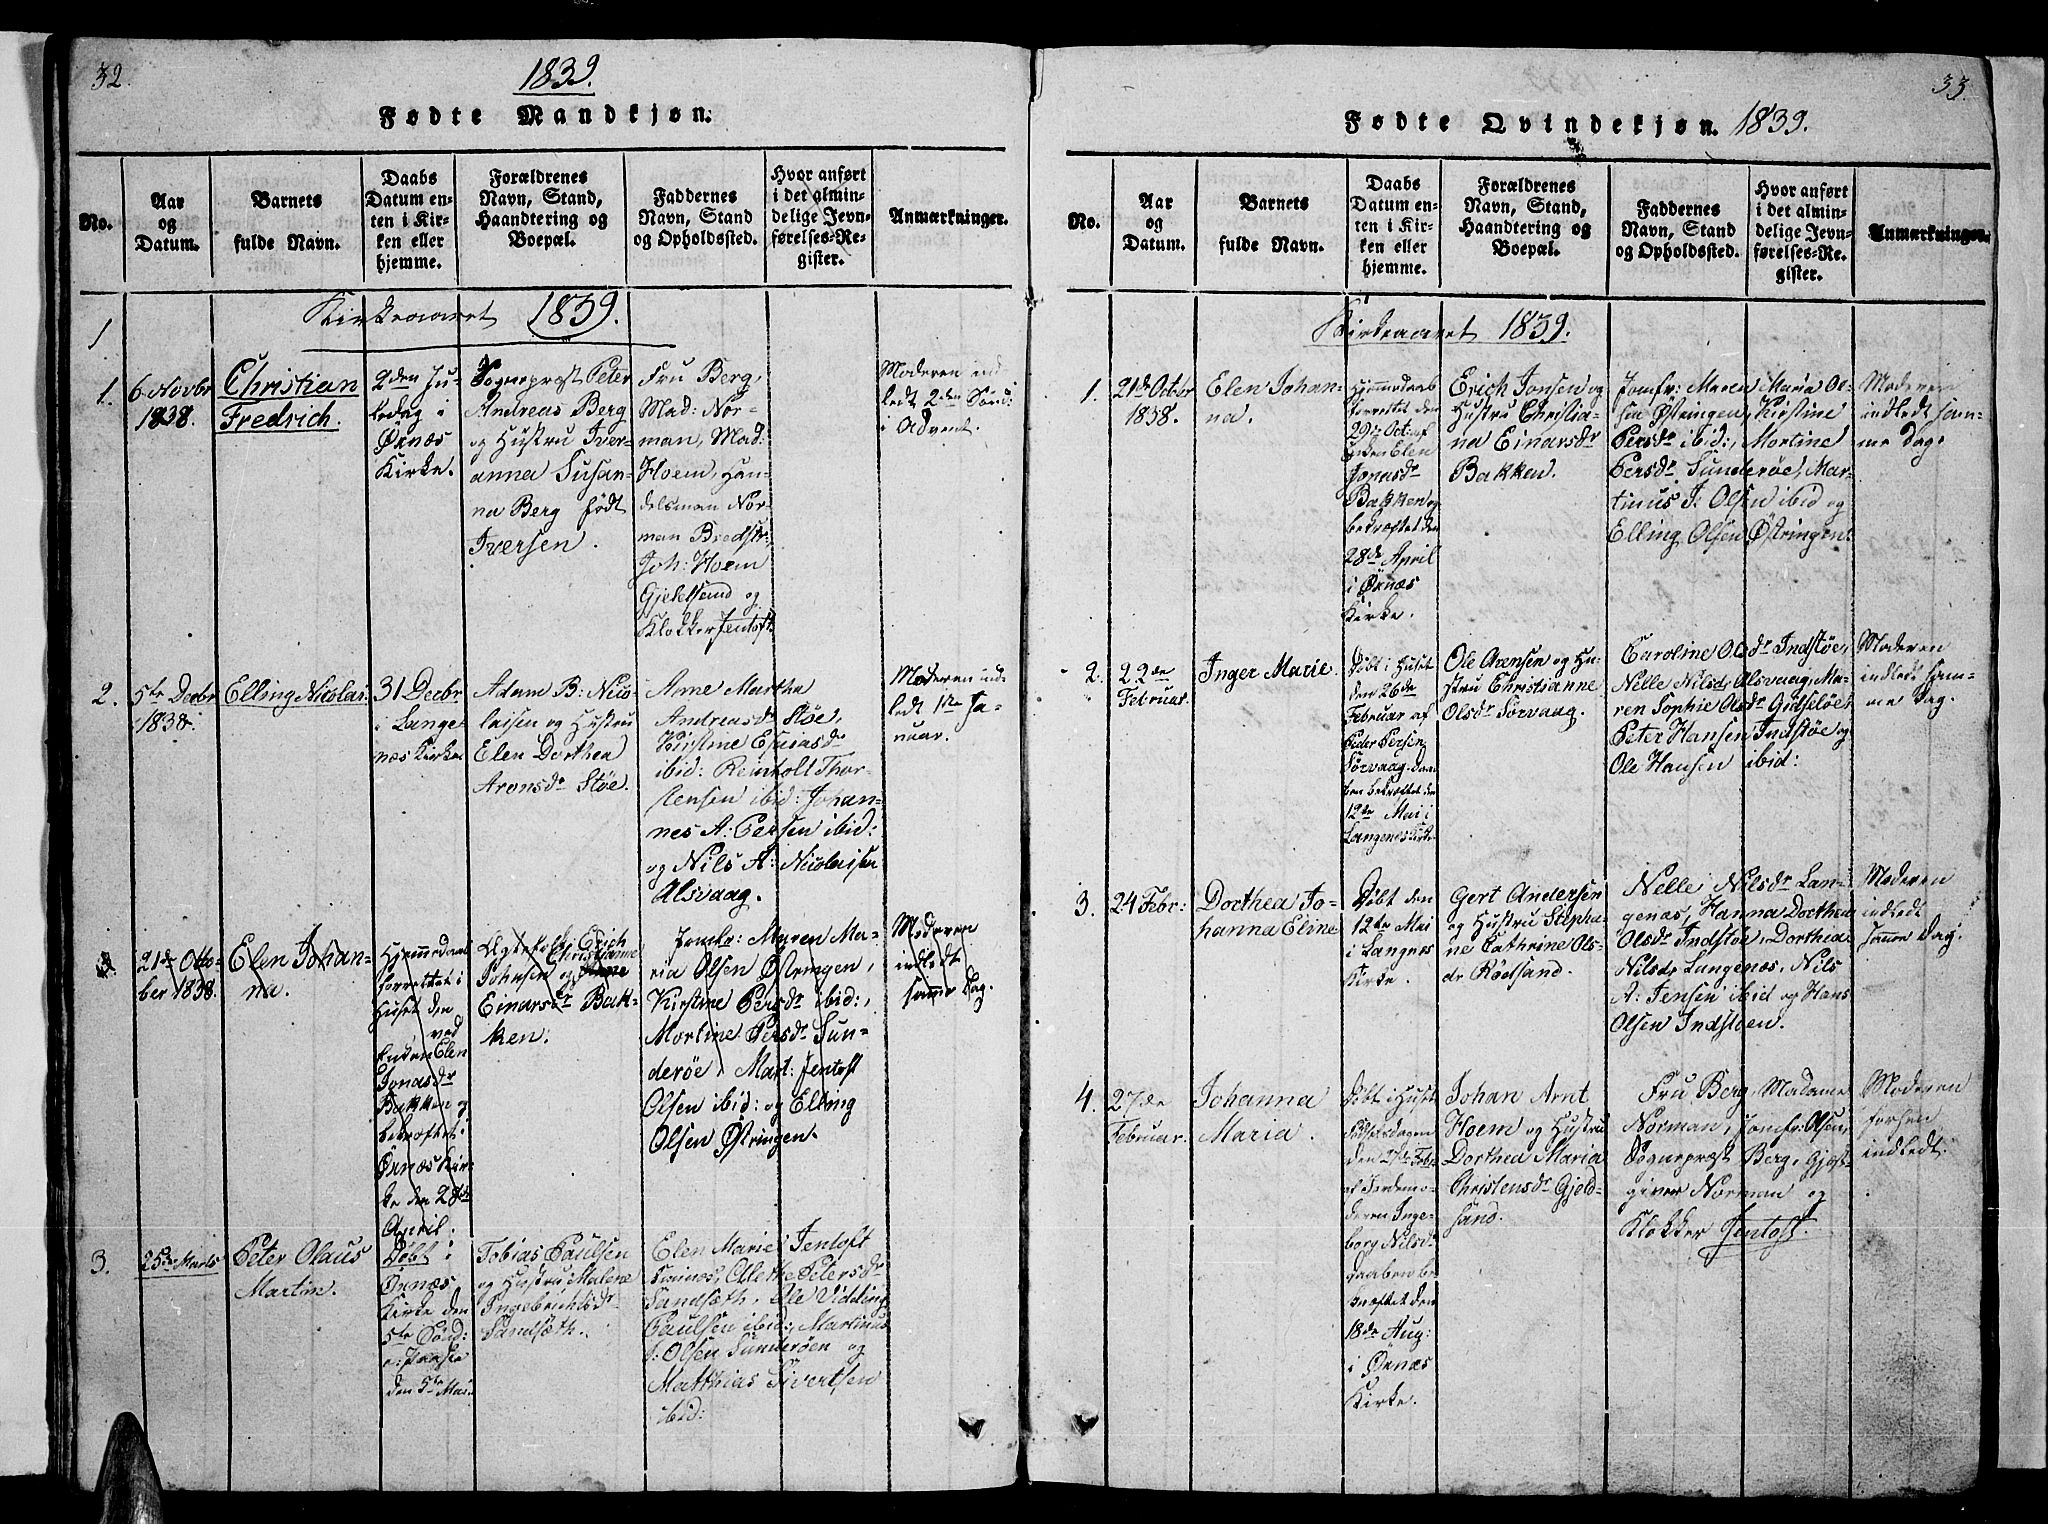 32.
1839.
Fødte Mandkjøn.
No.
Aar
og
Datum.
Barnets
fulde Navn.
Daabs
Datum en-
ten i Kir-
ken eller
hjemme.
Forældrenes
Navn, Stand,
Haandtering og
Boepæl.
Faddernes
Navn, Stand
og Opholdssted.
Hvor anført
i det almin-
delige Jevn-
førelses-Re-
gister.
Anmærkninger.
Kirkeaaret 1839.
1.
6 Novbr
1838.
Christian
Fredrich.
2den Ju-
ledag i
Ørnæs
Kirke.
Sognepræst Peter
Andreas Berg
og Hustru Iver-
anna Susan-
na Berg født
Iversen.
Fru Berg,
Mad: Nor-
man, Mad:
Hoem, Han-
delsman Nor-
man
Joh: Hoem
Gjeldsand og
Klokker Jentoft.
Moderen ind
ledt 2den Sønd:
i Advent.
2.
5te Decbr
1838.
Elling Nicolai.
31 Decbr
i Lange
næs Kirke
Adam B: Nico-
laisen og Hustru
Elen Dorthea
Aronsdr Støe.
Anne Martha
Andreasdr Støe,
Kirstine Esaiasdr
ibid: Reinholt Thor-
stensen ibid: Johan-
nes A: Persen ibid:
og Nils A: Nicolaisen
Alsvaag.
Moderen ind
ledt 1te Ja-
nuar.
3
21de Octo-
ber 1838.
Elen Johan-
na.
Hjemmedaab
forrettet i
Huset den
ved
Enken Elen
Jonasdr
Bakken og
bekræftet i
Ørnæs Kir-
ke den 28de
April.
Ægtefolk Erich
Johnsen og Christianne
Einarsdr Bak-
ken:
Jomfr: Maren Ma-
ria Olsen Østringen,
Kirstine Persdr ibid:,
Mortine Persdr Sun-
derøe, Mart: Jentoft
Olsen ibid: og Elling
Olsen Østringen.
Moderen
indledt
samme Dag.
3.
25de Marts
Peter Olaus
Martin.
Døbt i
Ørnæs
Kirke den
5te Sønd:
e: Paaske
den 5te Mai.
Tobias Paulsen
og Hustru Malene
Ingebrichtsdr
Sandsæth.
Elen Marie Jentoft
Olethe Petersdr
Sandsæth, Ole Vidding
Paulsen ibid:, Martinus
J: Olsen Sunderøen og
Matthias Sivertsen
ibid:
33.
Fødte Qvindekjøn. 1839.
No.
Aar
og
Datum.
Barnets
fulde Navn.
Daabs
Datum en-
ten i Kir-
ken eller
hjemme.
Forældrenes
Navn, Stand,
Haandtering og
Boepæl.
Faddernes
Navn, Stand
og Opholdssted.
Hvor anført
i det almin-
delige Jevn-
førelses-Re-
gister.
Anmærkninger.
Kirkeaaret 1839.
1.
21de Octbr
1838.
Elen Johan-
na.
Hjemmedaab
forrettet den
29de Oct: af
Enken Elen
Jonasdr
Bakken og
bekræftet den
28de April
i Ørnæs
Kirke.
Erich Jonsen og
Hustru Christia-
na Einarsdr
Bakken.
Jomfr: Maren Maria Ol-
sen Østringen, Kirstine
Persdr ibid:, Mortine
Persdr Sunderøe, Mar-
tinus J: Olsen ibid og
Elling Olsen Østringen:
Moderen
indledt sam-
me Dag.
2.
22de
Februar.
Inger Marie.
Døbt i Huset
den 26de
Februar af
Peder Persen
Sørvaag. Daa-
ben bekræftet den
12te Mai i
Langenes Kirke
Ole Arensen og Hu-
stru Christianne
Olsdr Sørvaag.
Caroline Olsdr Indstøe,
Nelle Nilsdr Alsvaag, Ma-
ren Sophie Olsdr Gidseløe,
Peter Hansen Indstøe og
Ole Hansen ibid:
Moderen
indledt sam-
me Dag.
3.
24 Febr:
Dorthea Jo-
hanna Eline
Døbt den
12te Mai
i Langnes
Kirke.
Gert Andersen
og Hustru Stepha-
ne Cathrine Ols-
dr Rødsand.
Nelle Nilsdr Lan-
genæs, Hanna Dorthea
Olsdr Indstøe, Dorthea
Nilsdr Langenæs, Nils
A: Jensen ibid og Hans
Olsen Indstøen.
Moderen
indledt
samme Dag.
4.
27de
Februar.
Johanna
Maria.
Døbt i Huset
Fødselsdagen
den 27de Febr
af Jordemo-
deren Inge-
borg Nilsdr
Daaben be
kræftet den
18de Aug:
i Ørnæs
Kirke.
Johan Arnt
Hoem og Hustru
Dorthea Maria
Christensdr Gjeld-
sand.
Fru Berg, Madame
Norman, Jomfr: Olsen,
Sognepræst Berg, Gjæst-
giver Norman og
Klokker Jentoft.
Moderen
forhen
indledt.